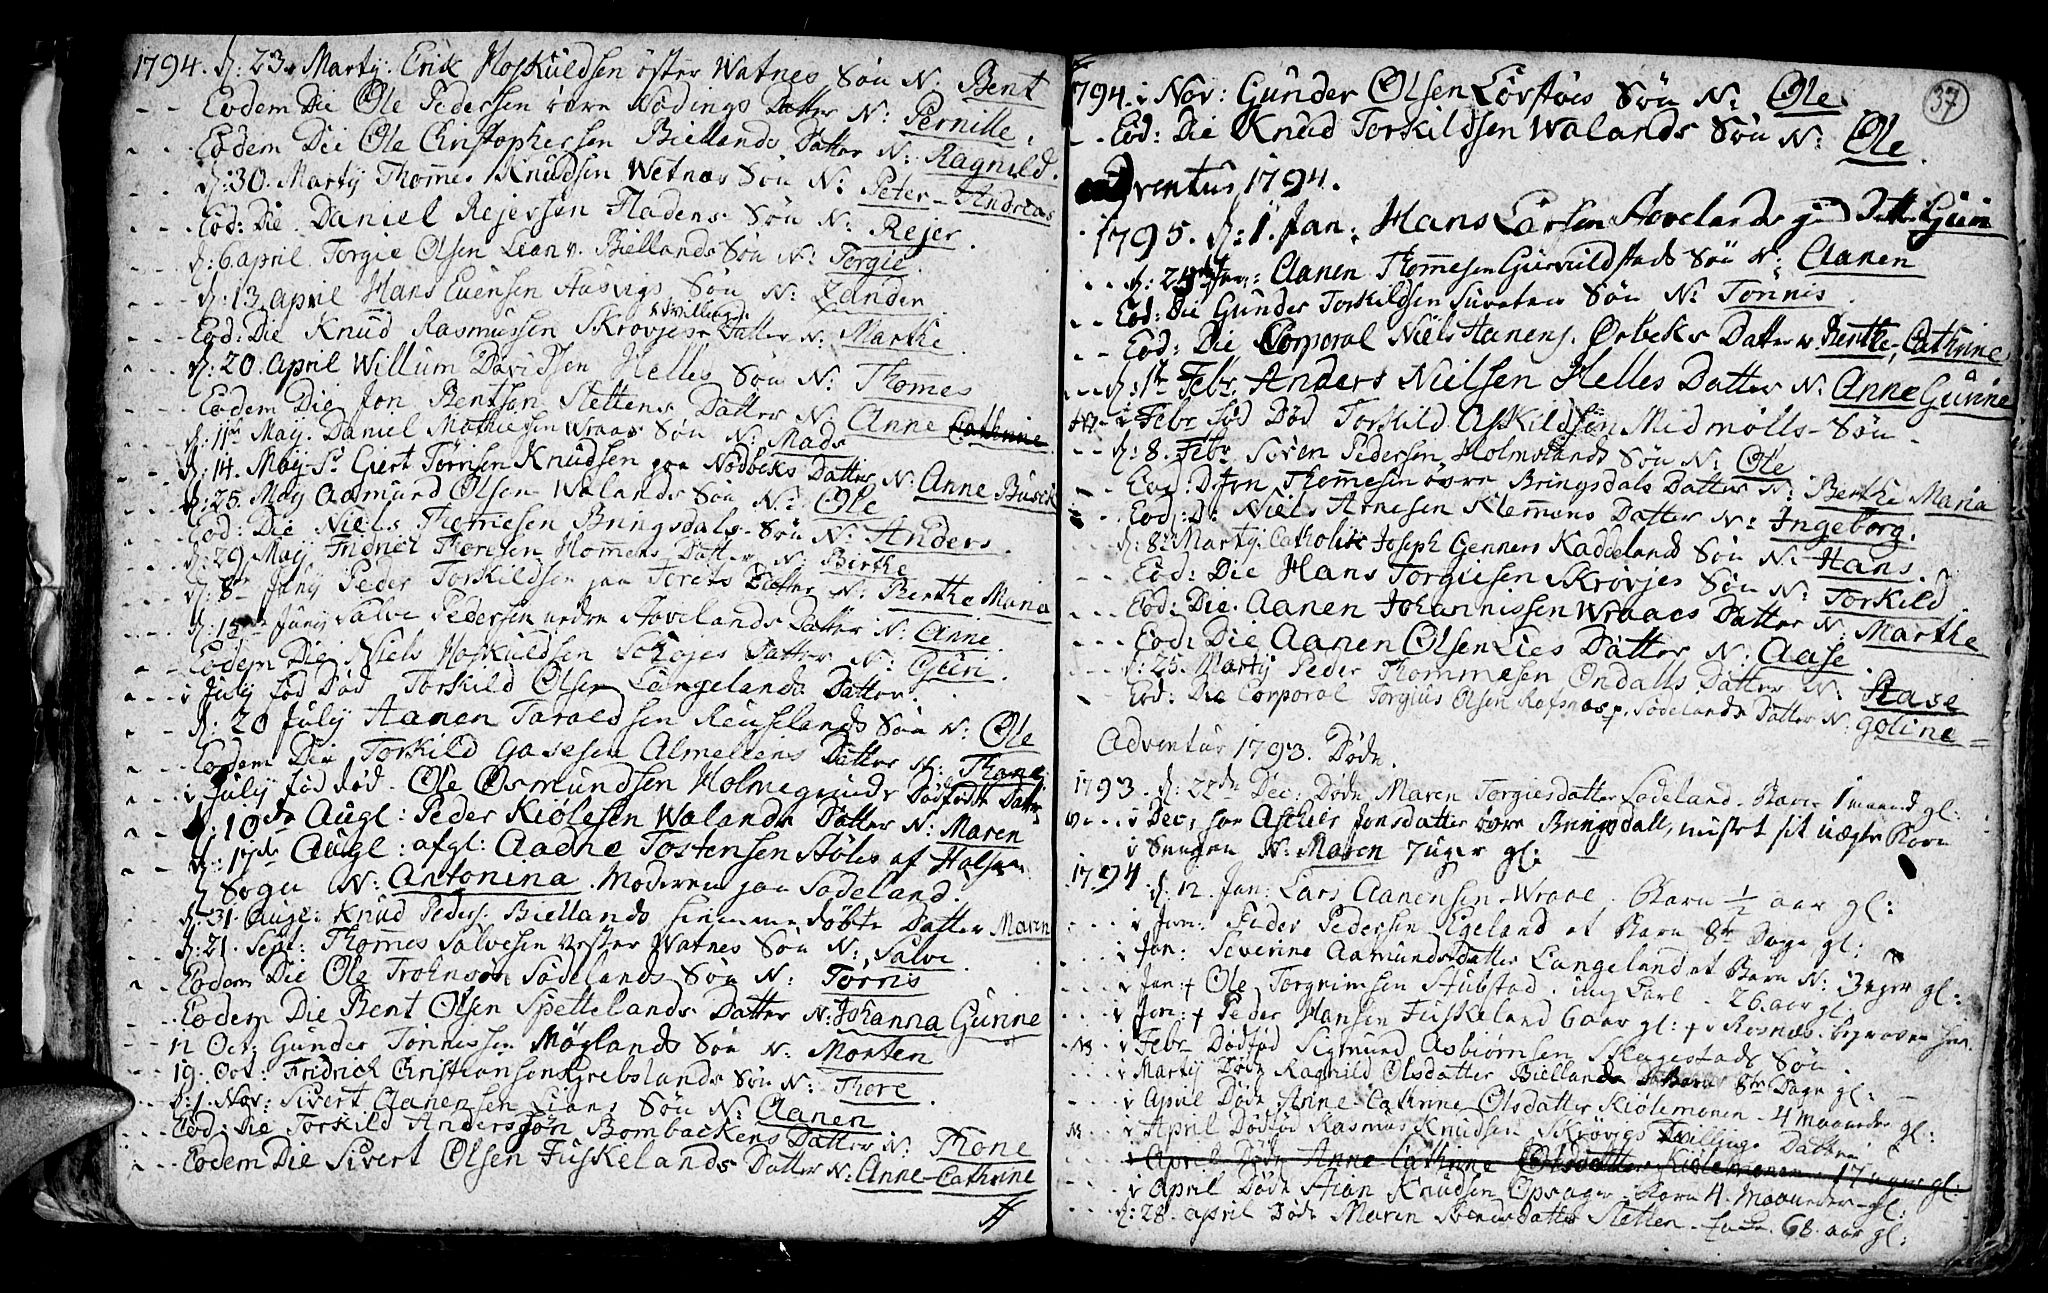 1794. d: 23. Martij. Erik Hoskuldsen öster Watnes Sön N: Bent
- - Eodem Die Ole Pedersen övre Nödings Datter N: Pernille.
- - Eodem Die Ole Christophersen Biellands Datter N: Ragnild.
- - d: 30. Martij Thomes Knudsen Wetnes Sön N: Peter-Andreas
- - Eod: Die Daniel Rejersen Fladens Sön N: Rejer.
- - d: 6 april Torgie Olsen Lian v. Biellands Sön N: Torgie.
- - d: 13 april Hans Evensen Aasvigs Sön N: Zanden
- - Eod: Die Knud Rasmussen Skrovjes Tvilling Datter N: Marthe.
- - d: 20. april Willum Davidsen Helles Sön N: Thomes
- - Eodem Die Jon Bentsen Slettens Datter N: Anne Cathrine
- - d: 11te May. Daniel Mathiesen Wraas Sön N: Mads
- - d: 14. May Sr Giert Tørnsen Knudsen paa Nodbeks Datter N: Anne Busck
- - d: 25. May Aasmund Olsen Walands Sön N: Ole
- - Eod: Die Niels Thomesen Bringsdals Sön N: Anders.
- - d: 29 May Fridrich Thorsen Homens Datter N: Birthe
- - d: 8de Junij Peder Torkildsen paa Torets Datter N: Berthe Maria
- - d: 15de Junij Salve Pedersen nedre Hovelands Datter N: Anne.
- - Eodem Die Niels Hoskuldsen Datter N: Guri.
- - i July fød Død Torkild Olsen Langelands Datter.
- - d: 20 July Aanen Taraldsen Reuselands Sön N: Ole
- - Eodem Die Torkild Gasesen Almeliens Datter N: Thone
- - i July fød død. Ole Osmundsen Holmegrunds Dødfødt Datter
- - d: 10de Augl: Peder Kiølesen Walands Datter N: Maren
- - d: 17de Augl: afgl: Aadne Tostensen Støles af Halse
d Sogn N: Antonina. Moderen paa Sødeland.
- - d: 31. Augl: Knud Peders. Biellands hiemmedøbte Datter Maren
- - d: 21. Sept: Thomes Salvesen vester Watnes Sön N: Salve
- - Eodem Die Ole Trohnsøn Sødelands Sön N: Torris
- - Eodem Die Bent Olsen Spettelands Datter N: Johanna Gurine
- - 12 Oct: Gunder Tønnissen Møglands Sön N: Morten
- - 19. Oct: Fridrich Christiansen Grebslands Sön N: Thore
- - d: 1. Nov: Sivert Aanensen Lians Sön N: Aanen
- - Eod: Die Torkild Andersøn Bombackens Datter N: Thone
- - Eodem Die Sivert Olsen Fuskelands Datter N: Anne-Cathrine
37
1794. i Nov: Gunder Olsen Lörstöes Sön N: Ole.
- - Eod: Die Knud Torkildsen Walands Sön N: Ole.
Adventus 1794.
1795. d: 1. Jan: Hans Larsen Hovelands Datter Guri
- - d: 25 Jan: Aanen Thomesen Gurvildstads Sön N: Aanen
- - Eod: Die Gunder Torkildsen Sön N: Tonnis.
- - Eod: Die Corporal Niels Aanens. Ørbeks Datter N: Berthe Cathrine
- - d: 1te Febr Anders Nielsen Helles Datter N: Anne Gurine
- - i Febr fød Død Torkild Askildsen Midmølls- Sön -
- - d: 8. Febr Sören Pedersen Holmelands Sön N: Ole
- - Eod: D: Jon Thomesen övre Bringsdals Datter N: Berthe Maria
- - Eod: D: Niels Arnesen Klemmens Datter N: Ingeborg.
- - d: 8de Marty: Catholik Joseph Genners Kaddelands Sön N: Hans.
- - Eod: Die Hans Torgiesen Skrøvjes Sön N: Torkild.
- - Eod: Die. Aanen Johannissen Wraaes Datter N: Marthe
- - Eod: Die Aanen Olsen Lies Datter N: Aase
- - d: 25. Martij Peder Thommesen Ondalls Datter N: Aase
- - Eod: Die Corporal Torgius Olsen Rosnæs p. Sødelands Datter N: Goline
Adventus 1793. Døde.
1793. d: 22de Dec: Døde Maren Torgiesdatter Sødeland. Barn 1 maaned gl:
- - i Dec, har Jonsdatter övre Bringsdall, mistet sit uægte Barn
i Sengen N: Maren 7 uger gl:
1794. d. 12. Jan: Lars Aanensen Wraae. Barn 1/2 aar gl:
- - i Jan: Peder Pedersen Egeland et Barn 8te Dage gl:
- - i Jan: Severine Aamundsdatter Langeland et Barn N: 3 uger gl:
- - i Jan: + Ole Torgrimsen Stubstad. ung Carl - 26. aar gl
- - i Jan: + Peder Hansen Fuskeland 6 aar gl: + v. Rosnæs. begraven her.
- - i Febr Dødfød Sigmund Asbiørnsen Skagestads Sön.
- - i Martij Døde Ragnild Olsdatter Biellands Barn 8te Dage gl:
- - i April Døde Anne-Cathrine Olsdatter Kiølemonen - 4 Maaneder gl:
- - i April Dødfød Rasmus Knudsen Skrøvigs Tvillings Datter
i April Døde Anne Cathrine Olsdatter Kiølemonen - 17 uger gl:
- - i April Døde Stian Knudsen Opsager. Barn 4. Maaneder gl:
- - d: 28. april Døde Maren Svendsdatter Sletten - 68. aar gl: